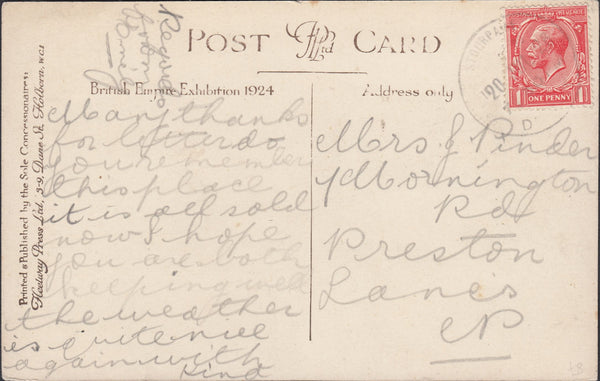 POST CARD
British Empire Exhibition 1924
Address only
Many thanks
for letter do
you remember
this place
it is all sold
now I hope
you are both
keeping well
the weather
is quite nice
again with
kind
Regards
from
Mrs J Pinder
Mornington
Rd
Preston
Lancs
ONE PENNY
1
1
20
D
Printed & Published by the Sole Concessionaires:
Fleetway Press Ltd, 3-9, Dane St, Holborn, WC1